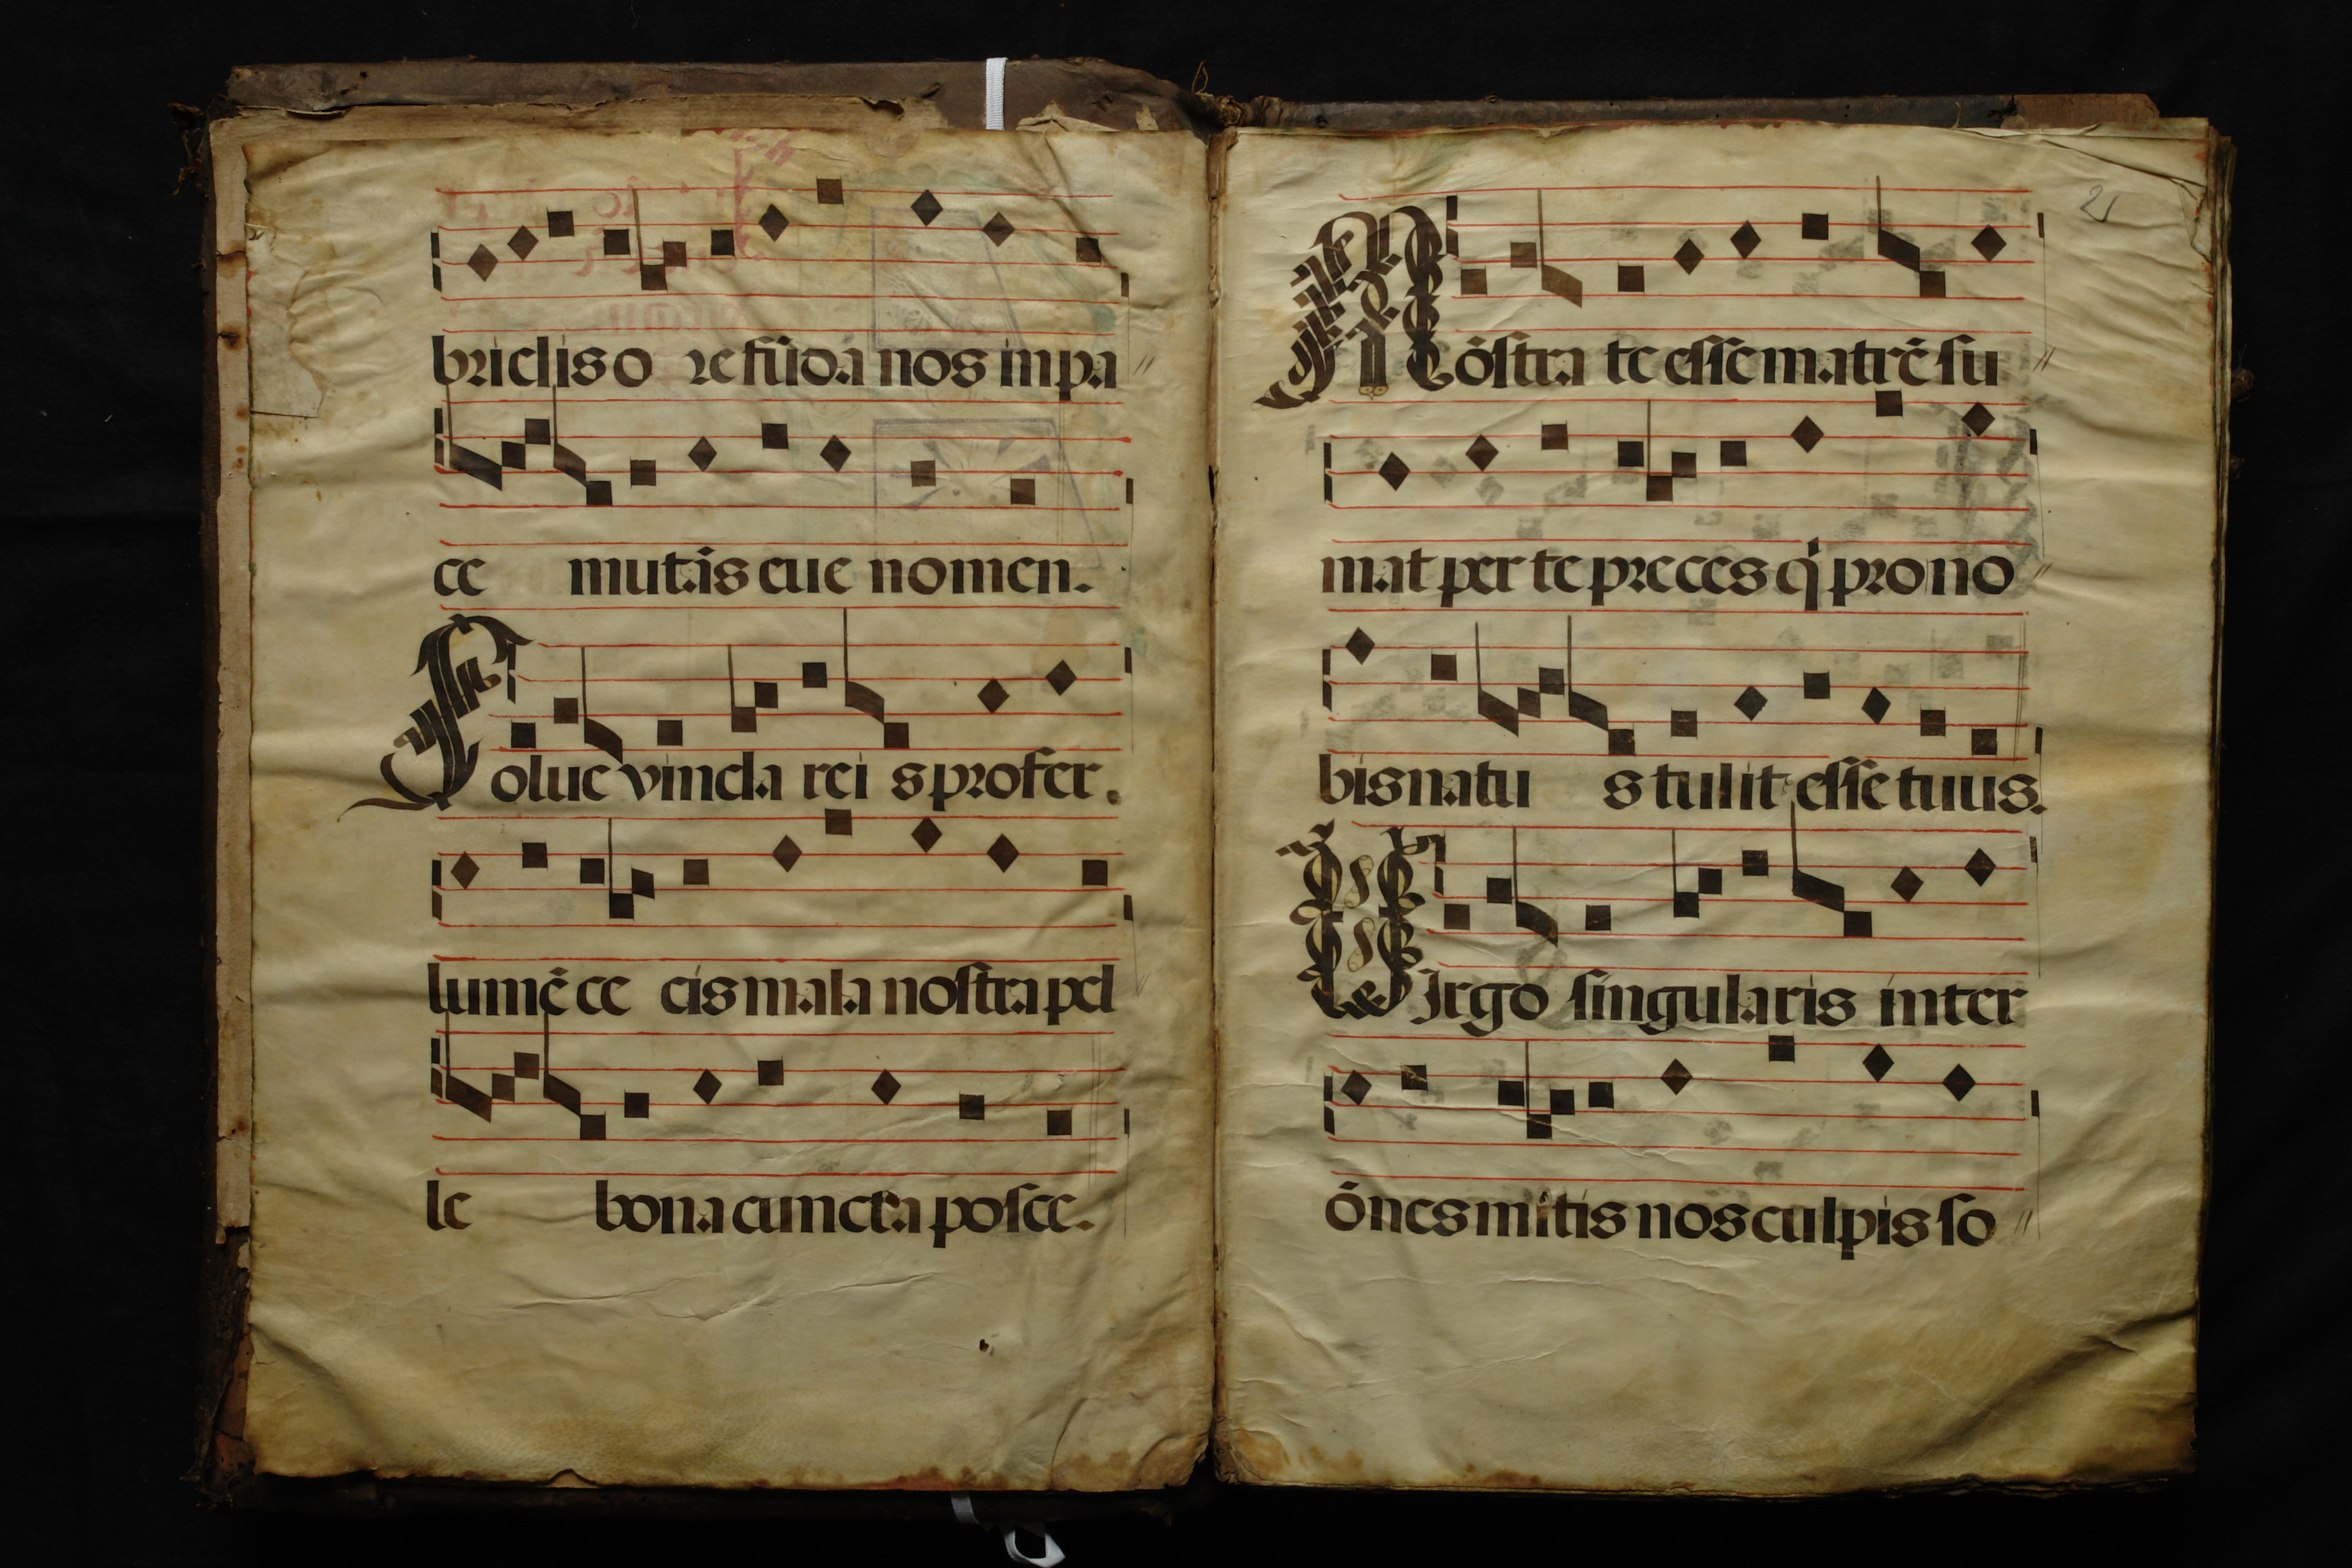 brielis o re fūda nos in pa
ce mutās eue nomen.
Solue vincla rei s profer.
lumē ce cis mala nostra pel
le bona cuncta posce.
Mōstra te esse matrē su
mat per te preces q̇ pro no
bis natu s tulit esse tuus.
Virgo singularis inter
ōnes mitis nos culpis so
21